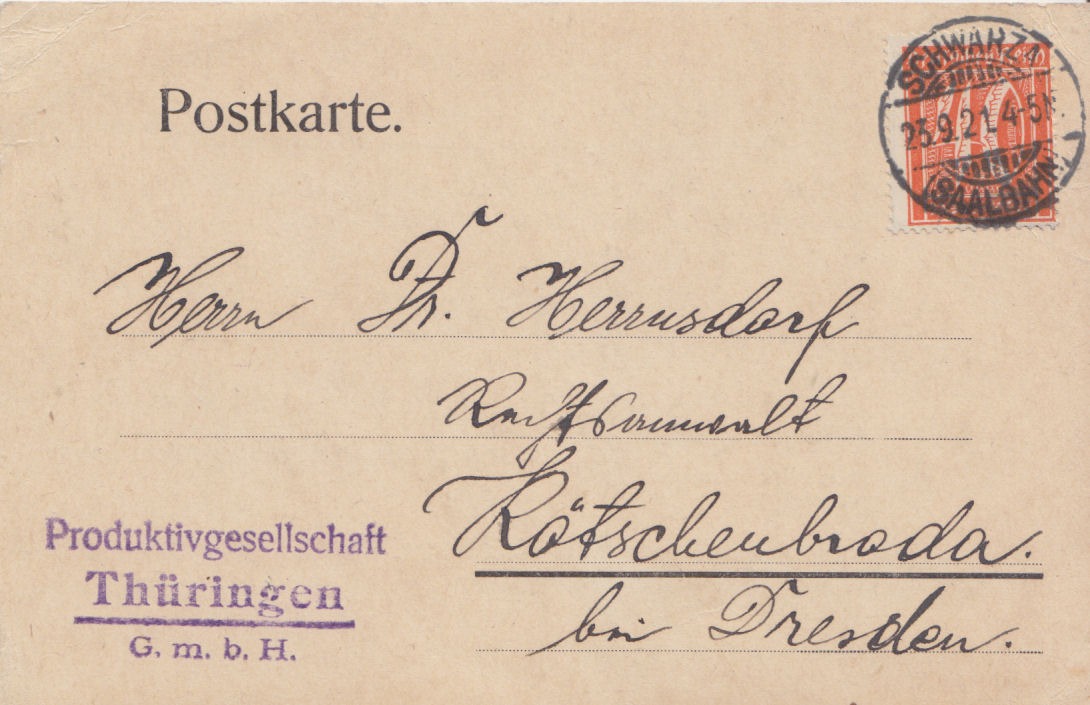 Postkarte.
SCHWARZA
23.9.21. 4-5N.
(SAALBAHN)
Herrn Dr. Herrnsdorf
Rechtsanwalt
Kötschenbroda.
bei Dresden.
Produktivgesellschaft
Thüringen
G. m. b. H.